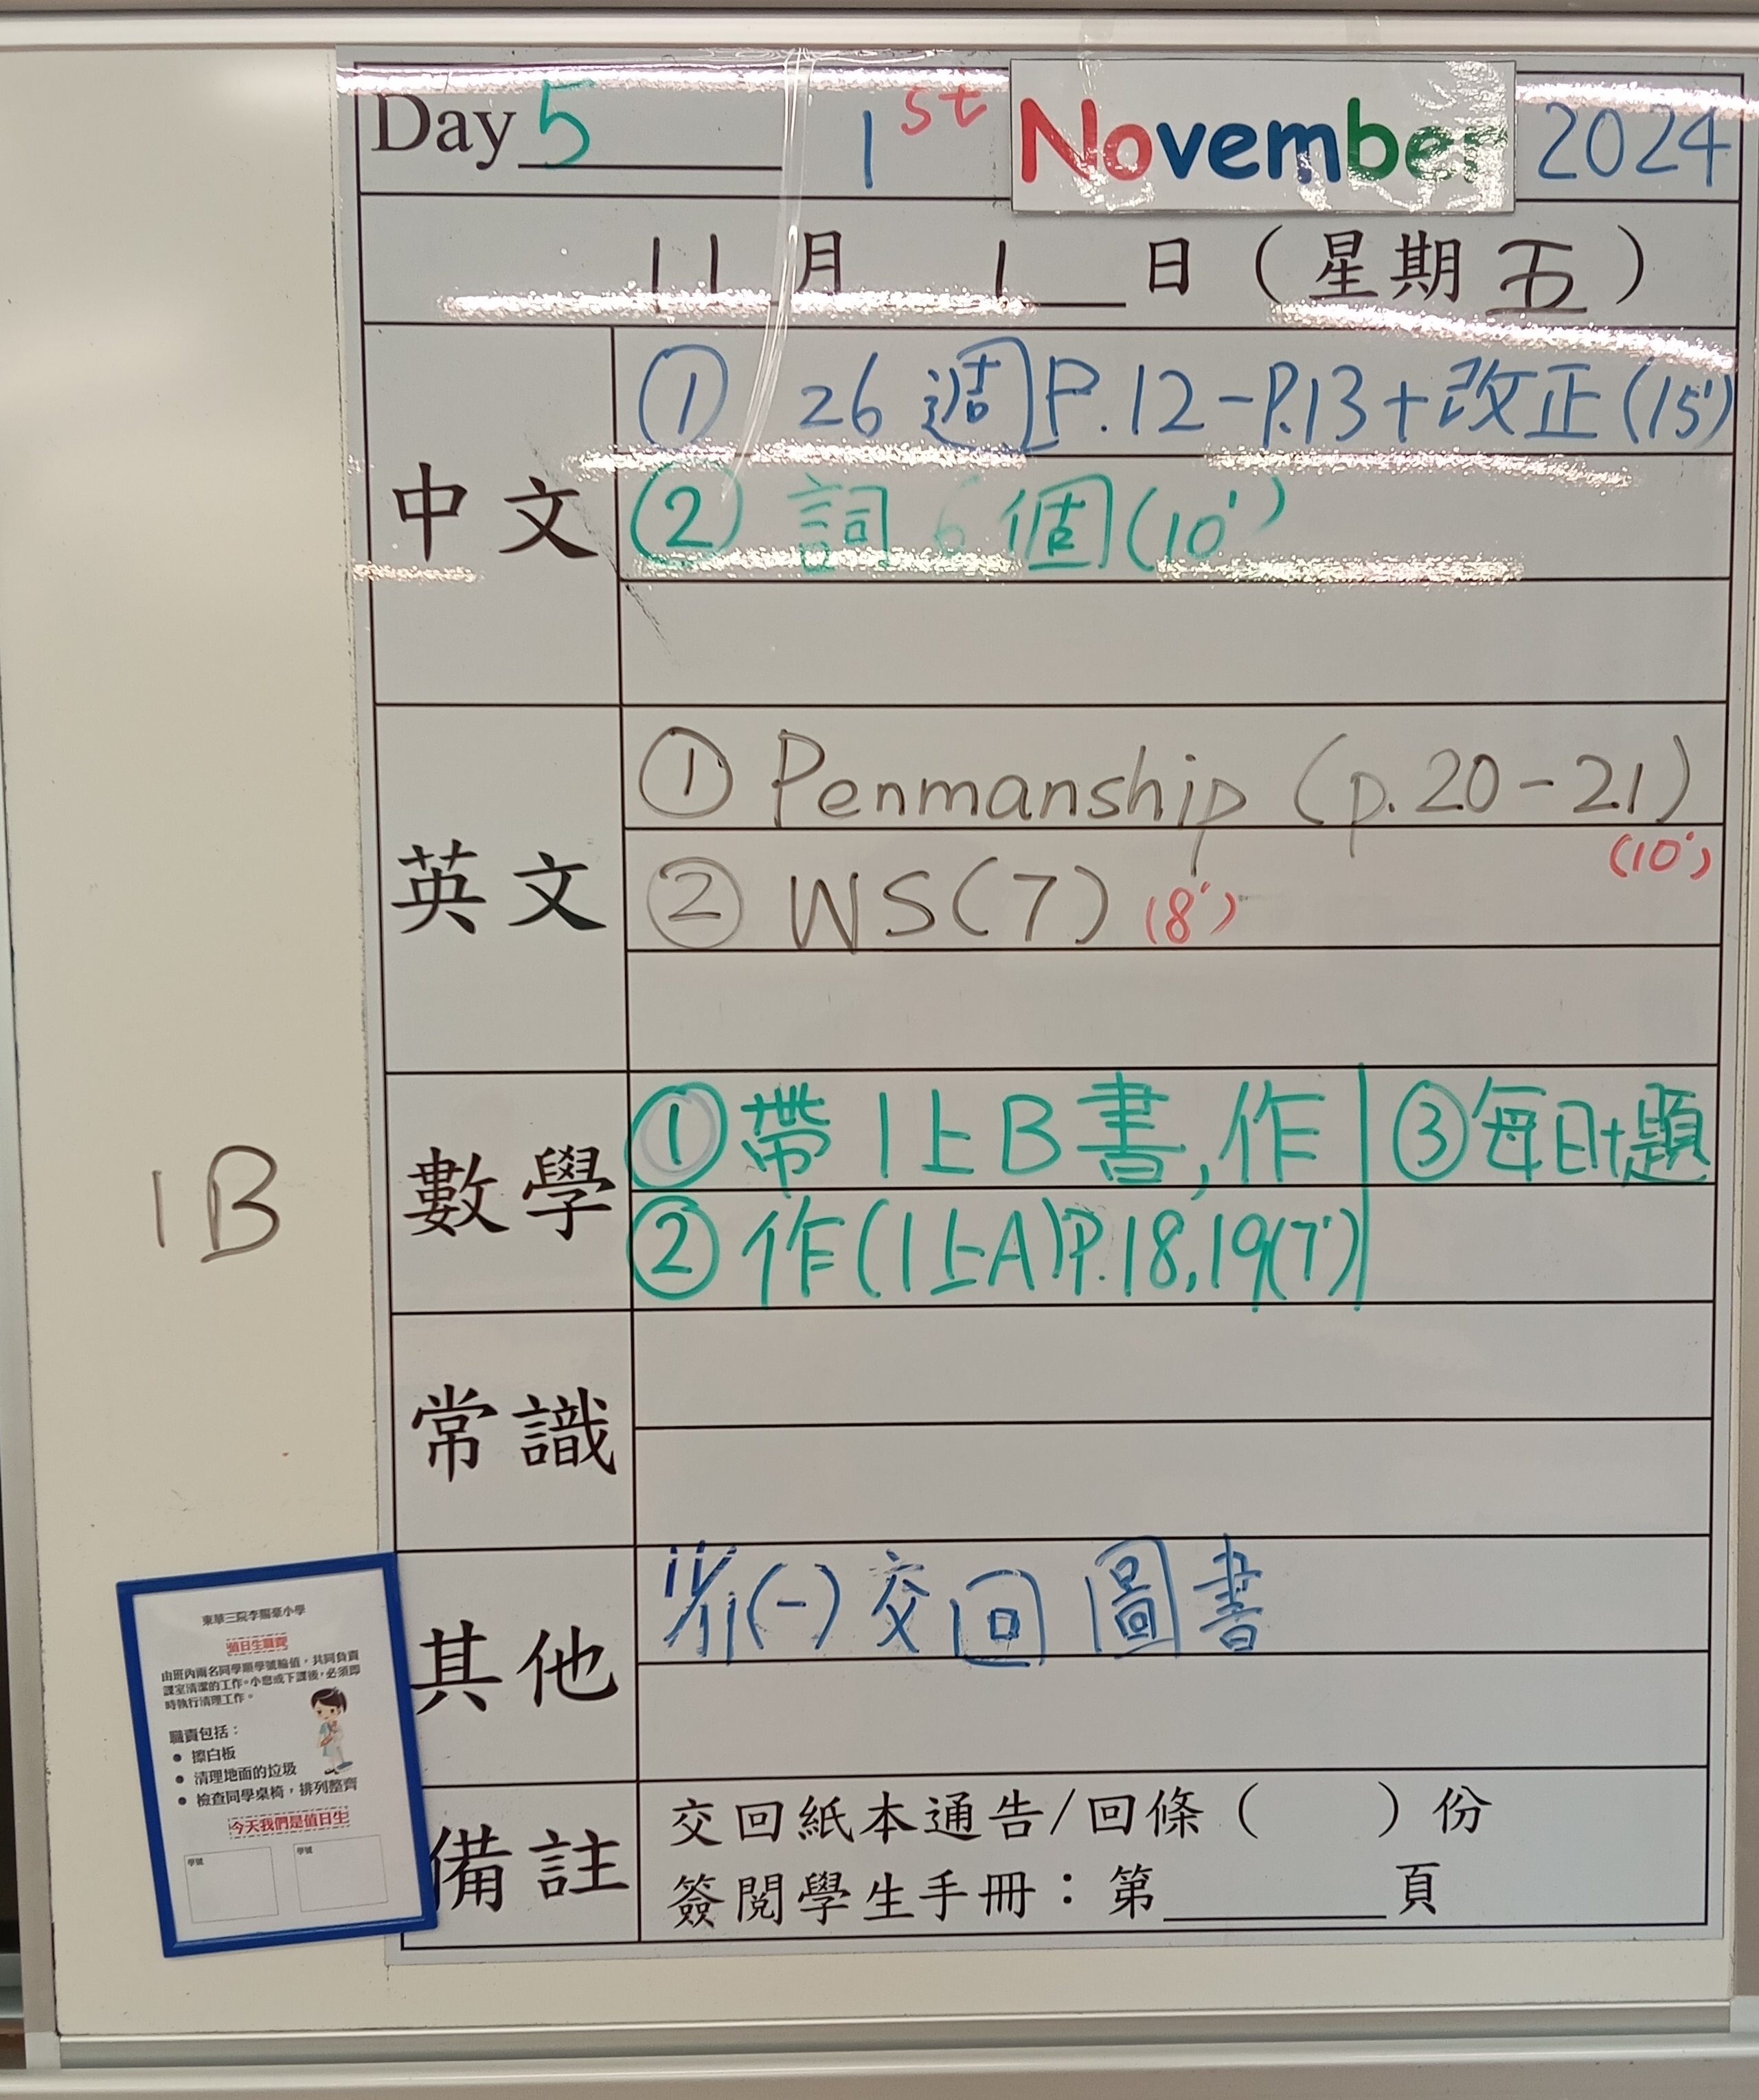 Day 5 1st November 2024
11月 1 日（星期五）
中文
① 26週P.12-P.13+改正(15')
② 詞6個(10')
英文
① Penmanship (p.20-21)
(10')
② WS(7) (8')
數學
① 帶1上B書,作 ③每日十題
② 作(1上A)P.18,19(7')
1B
常識
其他
11/11(一)交回圖書
備註
交回紙本通告/回條（ ）份
簽閱學生手冊：第____頁
東華三院李賜豪小學
值日生職責
由班內兩名同學順學號輪值，共同負責
課室清潔的工作。小息或下課後，必須即
時執行清理工作。
職責包括：
● 擦白板
● 清理地面的垃圾
● 檢查同學桌椅，排列整齊
今天我們是值日生
學號 學號